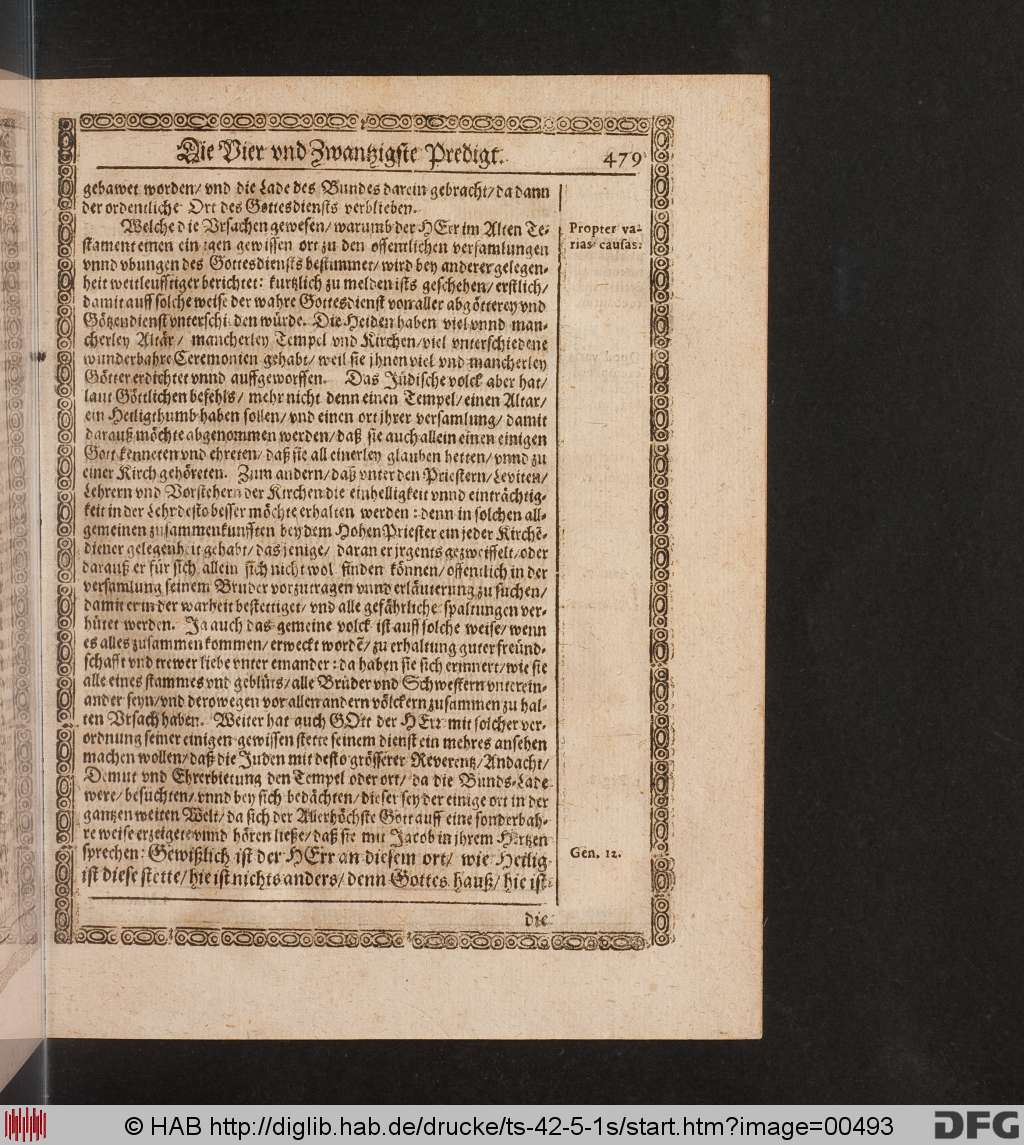 Die Vier vnd Zwantzigste Predigt. 479
gebawet worden/ vnd die Lade des Bundes darein gebracht/ da dann
der ordentliche Ort des Gottesdiensts verblieben.
Welche die Vrsachen gewesen/ warumb der HErr im Alten Te-
stament einen einigen gewissen ort zu den offentlichen versamlungen
vnnd vbungen des Gottesdiensts bestimmet/ wird bey anderer gelegen-
heit weitleufftiger berichtet: kurtzlich zu melden ists geschehen/ erstlich/
damit auff solche weise der wahre Gottesdienst von aller abgötterey vnd
Götzendienst vnterschieden würde. Die Heiden haben viel vnnd man-
cherley Altär/ mancherley Tempel vnd Kirchen/ viel vnterschiedene
wunderbahre Ceremonien gehabt/ weil sie jhnen viel vnd mancherley
Götter erdichtet vnnd auffgeworffen. Das Jüdische volck aber hat/
laut Göttlichen befehls/ mehr nicht denn einen Tempel/ einen Altar/
ein Heiligthumb haben sollen/ vnd einen ort jhrer versamlung/ damit
darauß möchte abgenommen werden/ daß sie auch allein einen einigen
Gott kenneten vnd ehreten/ daß sie all einerley glauben hetten/ vnnd zu
einer Kirch gehöreten. Zum andern/ daß vnter den Priestern/ Leviten/
Lehrern vnd Vorstehern der Kirchen die einhelligkeit vnnd einträchtig-
keit in der Lehr desto besser möchte erhalten werden: denn in solchen all-
gemeinen zusammenkunfften bey dem Hohen Priester ein jeder Kirchē-
diener gelegenheit gehabt/ das jenige/ daran er jrgents gezweiffelt/ oder
darauß er für sich allein sich nicht wol finden können/ offentlich in der
versamlung seinem Bruder vorzutragen vnnd erläuterung zu suchen/
damit er in der warheit bestettiget/ vnd alle gefährliche spaltungen ver-
hütet werden. Ja auch das gemeine volck ist auff solche weise/ wenn
es alles zusammen kommen/ erweckt wordē/ zu erhaltung guter freünd-
schafft vnd trewer liebe vnter einander: da haben sie sich erinnert/ wie sie
alle eines stammes vnd geblüts/ alle Brüder vnd Schwestern vnterein-
ander seyn/ vnd derowegen vor allen andern völckern zusammen zu hal-
ten Vrsach haben. Weiter hat auch GOtt der HErr mit solcher ver-
ordnung seiner einigen gewissen stette seinem dienst ein mehres ansehen
machen wollen/ daß die Juden mit desto grösserer Reverentz/ Andacht/
Demut vnd Ehrerbietung den Tempel oder ort/ da die Bunds-Lade
were/ besuchten/ vnnd bey sich bedächten/ dieser sey der einige ort in der
gantzen weiten Welt/ da sich der Allerhöchste Gott auff eine sonderbah-
re weise erzeigete vnnd hören ließe/ daß sie mit Jacob in jhrem Hertzen
sprechen: Gewißlich ist der HErr an diesem ort/ wie Heilig
ist diese stette/ hie ist nichts anders/ denn Gottes hauß/ hie ist
die
Propter va-
rias causas.
Gen. 12.
© HAB http://diglib.hab.de/drucke/ts-42-5-1s/start.htm?image=00493
DFG